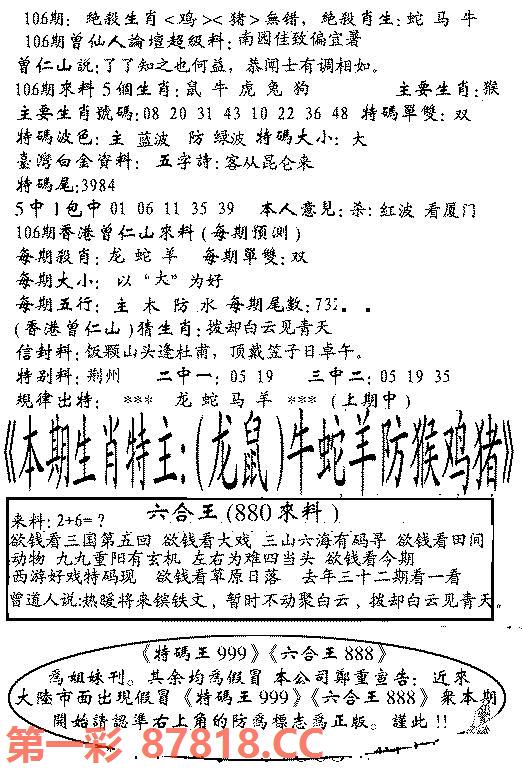 106期: 绝殺生肖<鸡><猪>無错, 绝殺肖生: 蛇 马 牛
106期曾仙人論壇超級料: 南园佳致偏宜署
曾仁山説: 了了知之也何益, 恭闻士有调相如。
106期來料5個生肖: 鼠 牛 虎 兔 狗 主要生肖: 猴
主要生肖號碼: 08 20 31 43 10 22 36 48 特碼單雙: 双
特碼波色: 主 蓝波 防 绿波 特碼大小: 大
臺灣白金資料: 五字詩: 客从昆仑来
特碼尾: 3984
5中1包中 01 06 11 35 39 本人意見: 杀: 红波 看厦门
106期香港曾仁山來料(每期预测)
每期殺肖: 龙 蛇 羊 每期單雙: 双
每期大小: 以“大”为好
每期五行: 主 木 防 水 每期尾數: 732..
(香港曾仁山)猜生肖: 拨却白云见青天
信封料: 饭颗山头逢杜甫, 顶戴笠子日卓午。
特别料: 荆州 二中一: 05 19 三中二: 05 19 35
規律出特: *** 龙 蛇 马 羊 *** (上期中)
《本期生肖特主:(龙鼠)牛蛇羊防猴鸡猪》
来料: 2+6=? 六合王(880來料)
欲钱看三国第五回 欲钱看大戏 三山六海有码寻 欲钱看田间
动物 九九重阳有玄机 左右为难四当头 欲钱看今期
西游好戏特码现 欲钱看草原日落 去年三十二期看一看
曾道人说: 热暖将来镔铁文, 暂时不动聚白云, 拨却白云见青天。
《特碼王999》《六合王888》
為姐妹刊。其余均為假冒 本公司鄭重宣告: 近來
大陸市面出現假冒《特碼王999》《六合王888》衆本期
開始請認準右上角的防為標志為正版。謹此!!
第一彩 87818.CC